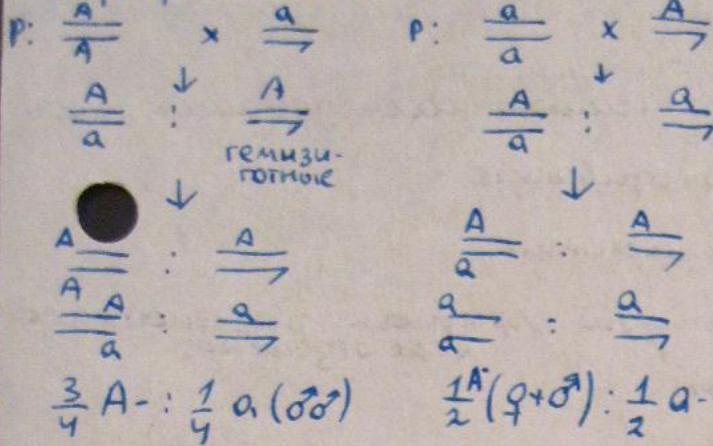 P: A A x a
A a : A
гемизи-
готные
A A : A
A a : a
3/4 A- : 1/4 a (♂♂)
P: a a x A
A a : a
A a : A
a a : a
1/2 A- (♀+♂) : 1/2 a-